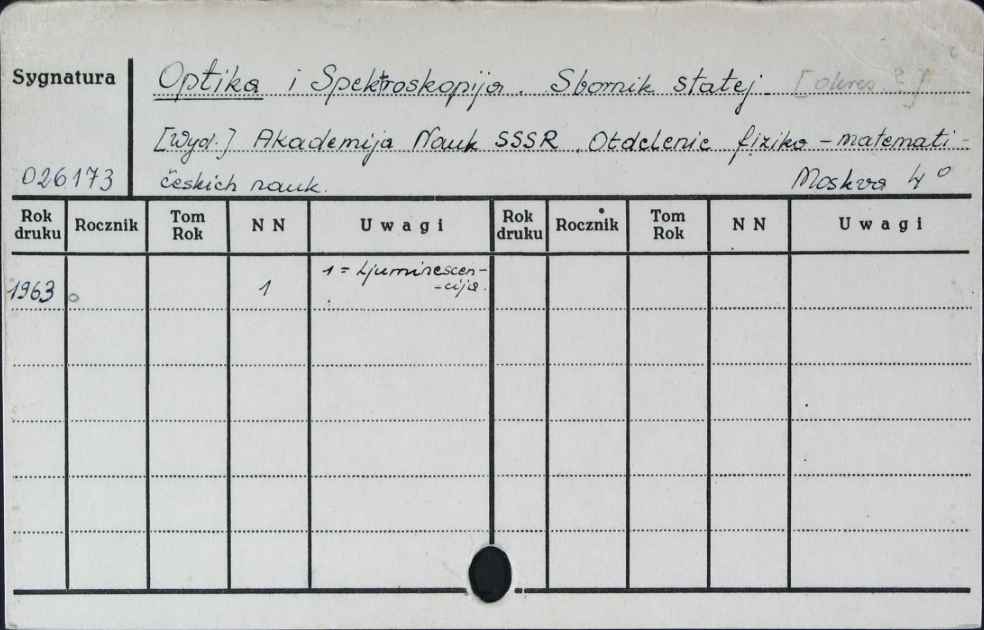 Sygnatura
Optika i Spektroskopija. Sbornik statej. [okres ?]
[Wyd.] Akademija Nauk SSSR. Otdelenie fiziko-matemati-
českich nauk. Moskva 4°
026173
Rok druku Rocznik Tom Rok NN Uwagi Rok druku Rocznik Tom Rok NN Uwagi
1 = Ljuminescen-
-cija.
1963 1